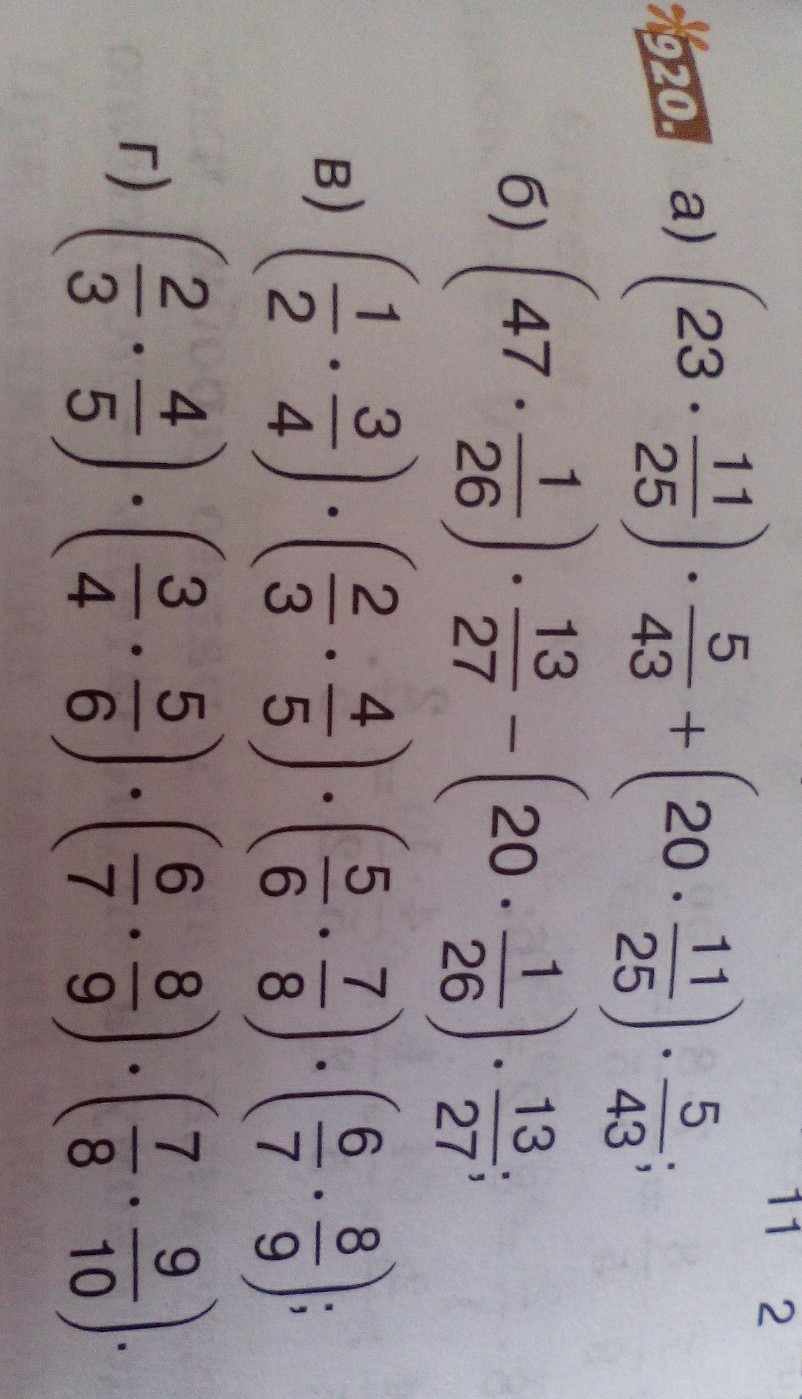 11 2
*920. а) (23 · 11/25) · 5/43 + (20 · 11/25) · 5/43;
б) (47 · 1/26) · 13/27 − (20 · 1/26) · 13/27;
в) (1/2 · 3/4) · (2/3 · 4/5) · (5/6 · 7/8) · (6/7 · 8/9);
г) (2/3 · 4/5) · (3/4 · 5/6) · (6/7 · 8/9) · (7/8 · 9/10).